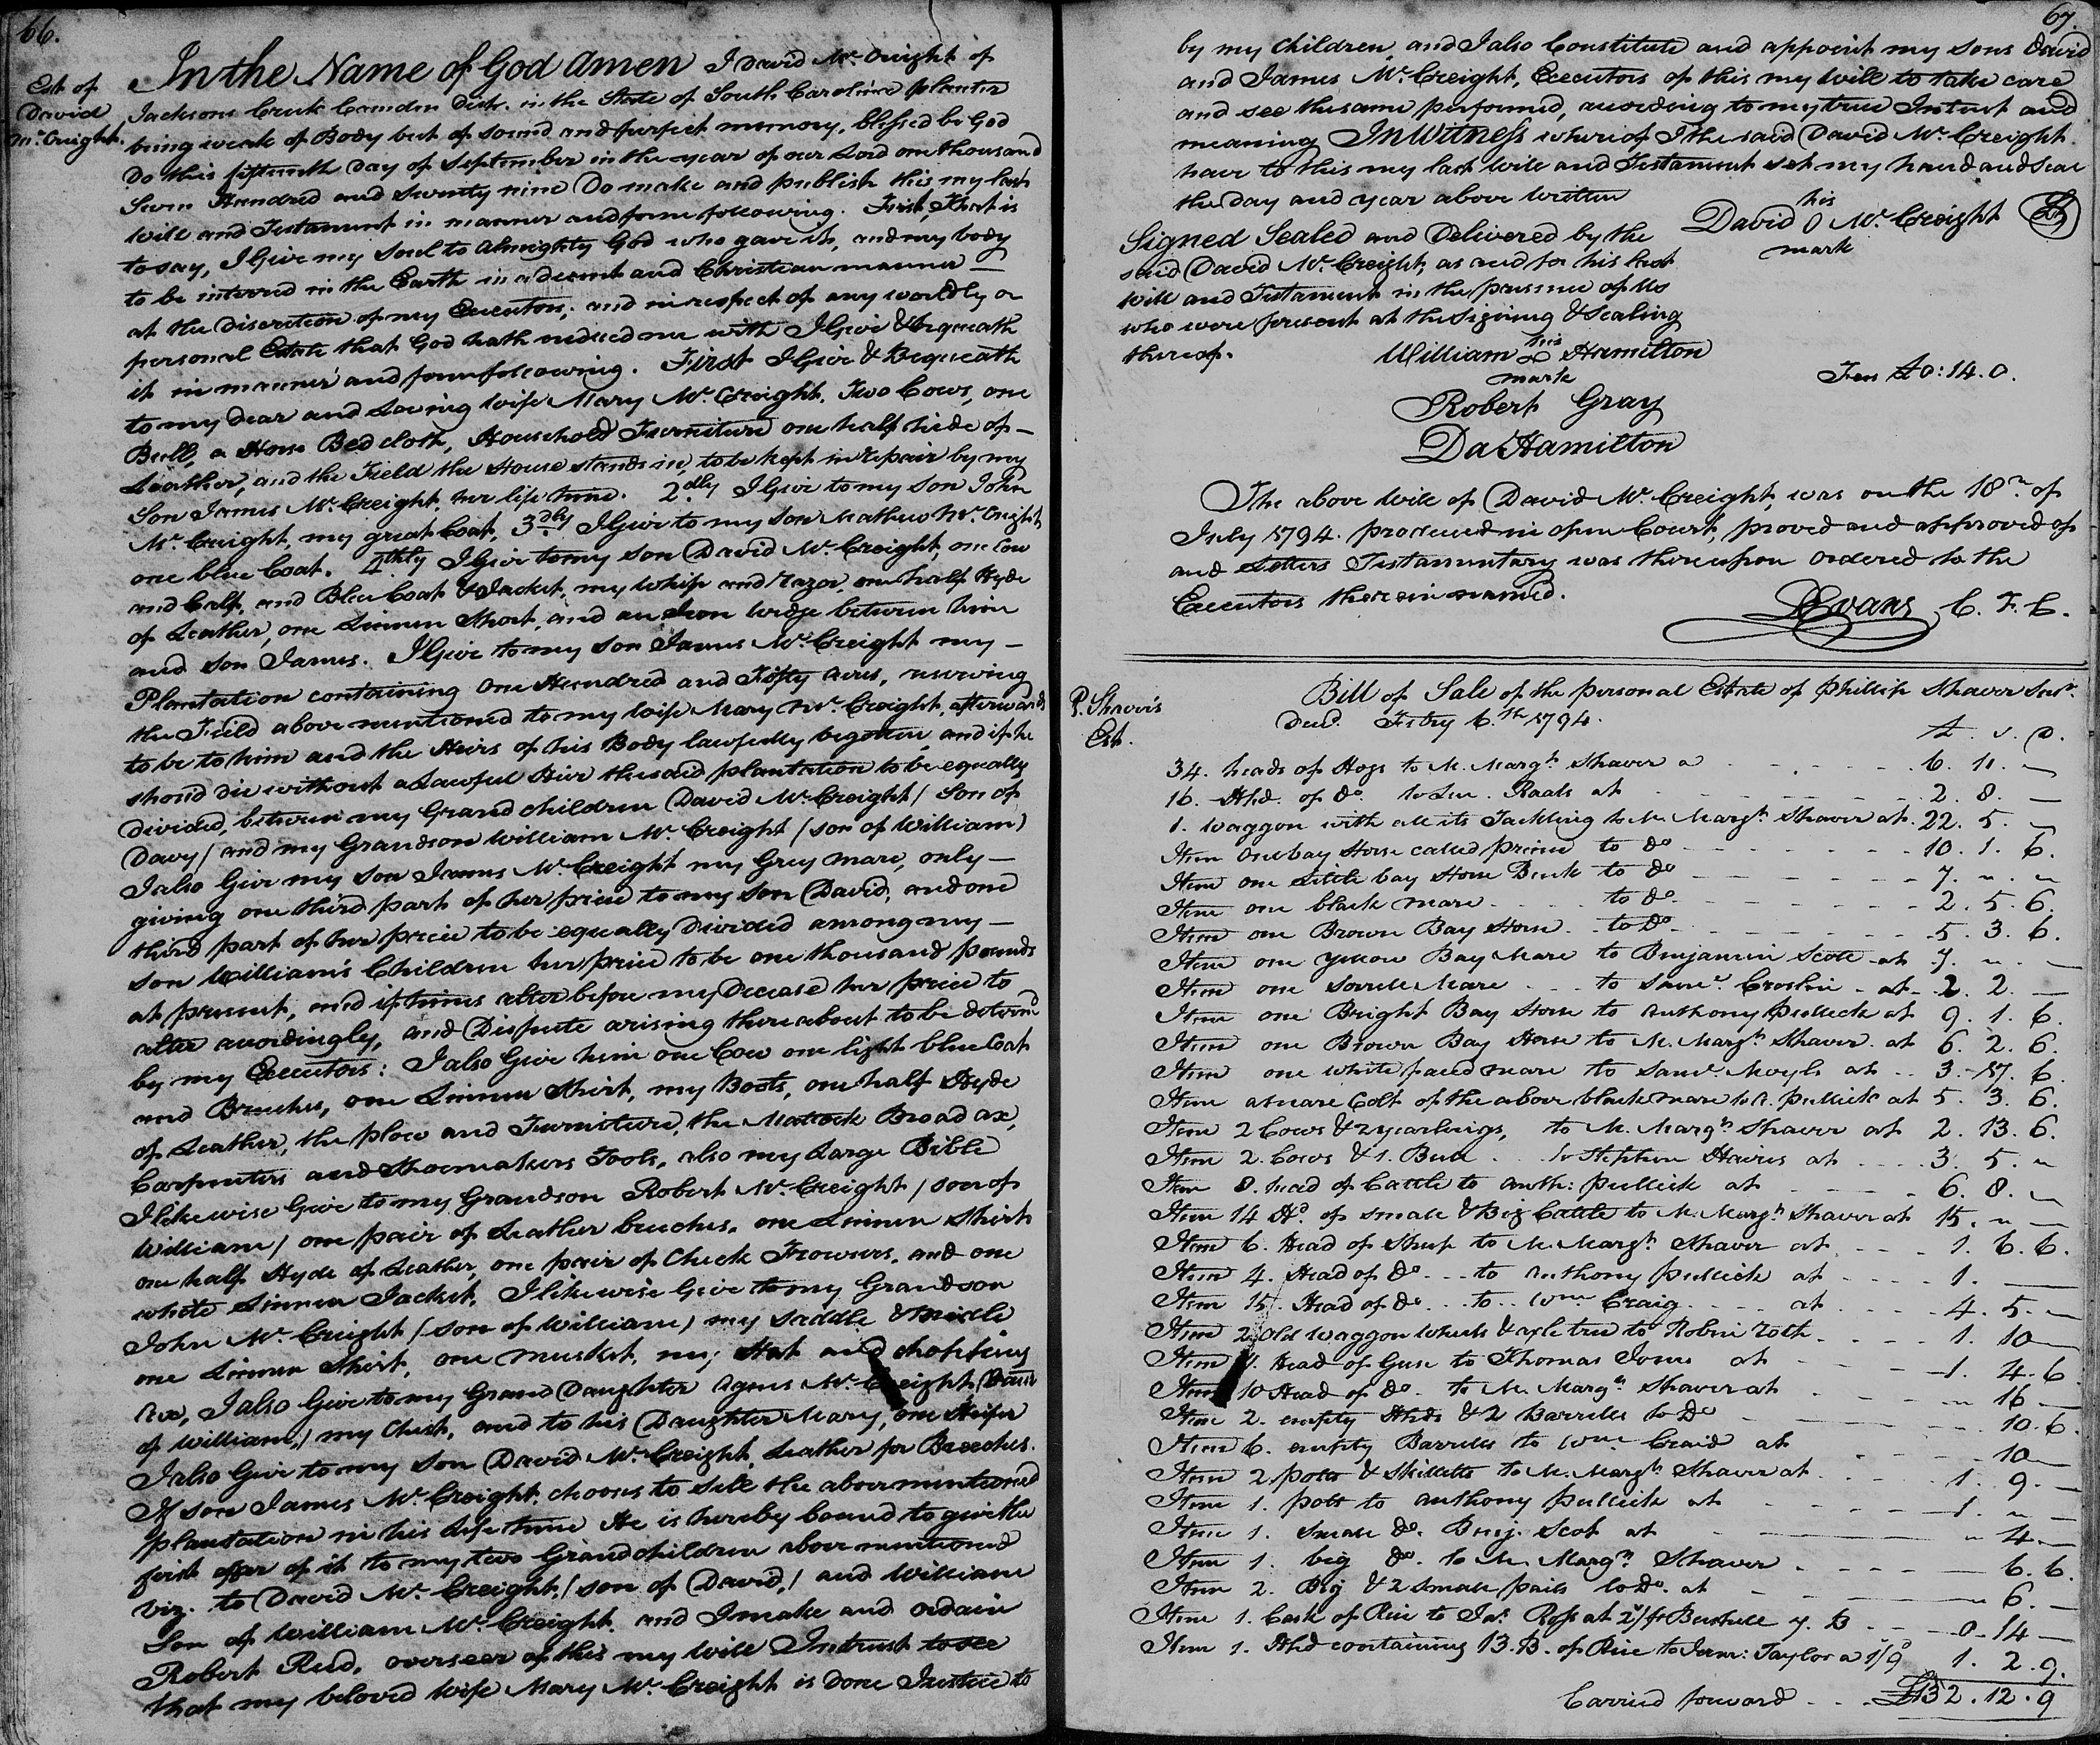 66.
Est of
David
McCreight.
In the Name of God Amen I David McCreight of
Jacksons Creek Camden Distr. in the State of South Carolina planter
being weak of Body but of sound and perfect memory, blessed be God
Do this fifteenth Day of September in the year of our Lord one thousand
Seven Hundred and Seventy nine Do make and publish this my last
Will and Testament in manner and form following. First, That is
to say, I Give my Soul to Almighty God who gave it, and my body
to be interred in the Earth in a decent and Christian manner —
at the discretion of my Executors; and in respect of any worldly or
personal Estate that God hath indued me with I Give & bequeath
it in manner and form following. First I Give & Bequeath
to my Dear and Loving wife Mary McCreight, Two Cows, one
Bull, a Horse Bed cloth, Household Furniture one half hide of —
Leather, and the Field the House stands in, to be kept in repair by my
Son James McCreight, her life time. 2dly I Give to my Son John
McCreight, my great Coat, 3dly I Give to my Son Mathew McCreight
one blue Coat. 4thly I Give to my son David McCreight one Cow
and Calf, and Blue Coat & Jacket, my whip and razor, one half Hyde
of Leather, one Linnen Short, and an Iron wedge between him
and son James. I Give to my son James McCreight my —
Plantation containing One Hundred and Fifty acres, reserving
the Field above mentioned to my Wife Mary McCreight, afterwards
to be to him and the Heirs of his Body lawfully begotten, and if he
should die without a Lawful Heir the said plantation to be equally
Divided, between my Grand children David McCreight / Son of
Davy / and my Grandson William McCreight / son of William)
I also Give my son James McCreight my Grey mare, only —
giving one third part of her price to my son David, and one
third part of her price to be equally Divided among my —
son William's Children her price to be one thousand pounds
at present, and if times alter before my Decease her price to
alter accordingly, and Dispute arising there about to be determd
by my Executors: I also Give him one Cow one light blue Coat
and Breeches, one Linnen Shirt, my Boots, one half Hyde
of Leather, the plow and Furniture, the Mattock Broad ax,
Carpenters and Shoemakers Tools, also my Large Bible
I likewise Give to my Grandson Robert McCreight / son of
William / one pair of Leather breeches, one Linnen Shirt
one half Hyde of Leather, one pair of Check Trowsers, and one
white Linnen Jacket. I likewise Give to my Grandson
John McCreight / son of William) my Saddle & Bridle
one Linnen Shirt, one musket, my Hat and chopping
Axe, I also Give to my Grand Daughter Agnes McCreight
of William,) my Chest, and to his Daughter Mary, one Heifer
I also Give to my son David McCreight, Leather for Breeches.
If son James McCreight, chooses to sell the above mentioned
plantation in his life time He is hereby bound to give the
first offer of it to my two Grandchildren above mentioned
Viz. to David McCreight, / son of David, / and William
Son of William McCreight. and I make and ordain
Robert Reed, overseer of this my Will Intrust to see
that my beloved wife Mary McCreight is done Justice to
67.
by my children, and I also Constitute and appoint my sons David
and James McCreight, Executors of this my Will to take care
and see the same performed, according to my true Intent and
meaning In Witness whereof I the said David McCreight
have to this my last Will and Testament set my hand and Seal
the day and year above written
his
David O McCreight LS
mark
Signed Sealed and Delivered by the
said David McCreight, as and for his last
Will and Testament in the presence of Us
who were present at the Signing & Sealing
thereof.
his
William Hamilton
mark
Fees £0:14.0.
Robert Gray
Da Hamilton
The above Will of David McCreight, was on the 18th of
July 1794. produced in open Court, proved and approved of
and Letters Testamentary was thereupon ordered to the
Executors therein named.
DEvans, C. F. C.
P. Shaver's
Est.
Bill of Sale of the personal Estate of Phillip Shaver Senr.
Decd. Febry 6.th 1794.
£ . S . D.
34. heads of Hogs to M. Margt. Shaver a - - - 6. 11. —
16. Hhd. of Do. to Raals at - - - 2. 8. —
1. Waggon with all its Tackling to M. Margt. Shaver at . 22. 5. —
Item One bay Horse called prince to Do - - - 10. 1. 6.
Item one Little bay Horse Buck to Do - - - 7. " . "
Item one black mare - - to Do - - - 2. 5. 6.
Item one Brown Bay Horse - to Do - - - 5. 3. 6.
Item one yellow Bay Mare to Benjamin Scott at 7. " . —
Item one Sorrell Mare - - to Saml. Croslin - at - 2. 2. —
Item one Bright Bay Horse to Anthony Pullick at 9. 1. 6.
Item one Brown Bay Horse to M. Margt. Shaver. at 6. 2. 6.
Item one white faced mare to Saml. Moyls at - - 3. 17. 6
Item a mare Colt of the above black mare to A. Pullick at 5. 3. 6.
Item 2 Cows & 2 yearlings, to M. Margt. Shaver at 2. 13. 6.
Item 2. Cows & 1. Bull - - to Stephen Harris at - - - 3. 5. "
Item 8. head of Cattle to Anth: Pullick at - - - 6. 8. —
Item 14 Hd. of small & Big Cattle to M. Margt. Shaver at 15. " —
Item 6. Head of Sheep to M. Margt. Shaver at - - - 1. 6. 6.
Item 4. Head of Do - - to Anthony Pullick at - - - 1. —
Item 15. Head of Do - - to - Wm Craig - - - at - - - 4. 5. —
Item 2 old Waggon Wheels & axle tree to Robin - - - 1. 10 —
Item Head of Geese to Thomas Jones at - - - 1. 4. 6
Item 10 Head of Do. to M. Margt. Shaver at - - - " 16 —
Item 2. empty Hhds & 2 Barrells to Do - - - 10. 6.
Item 6. empty Barrells to Wm Craid at - - - 10 —
Item 2 potts & Skilletts to M. Margt. Shaver at - - - 1. 9. —
Item 1. pott to Anthony Pullick at - - - 1. " —
Item 1. Small Do. Benj. Scot at - - - " 4 —
Item 1. big Do. to M. Margt. Shaver - - - 6. 6.
Item 2. Big & 2 small pails to Do. at - - - " 6. —
Item 1. Cask of Rice to Jas. Ross at 2/ pr Bushell 7. B - - - 0. 14 —
Item 1. Hhd containing 13. B. of Rice to Jerm: Taylor a 1/9 1. 2. 9.
Carried forward - - - £132. 12. 9